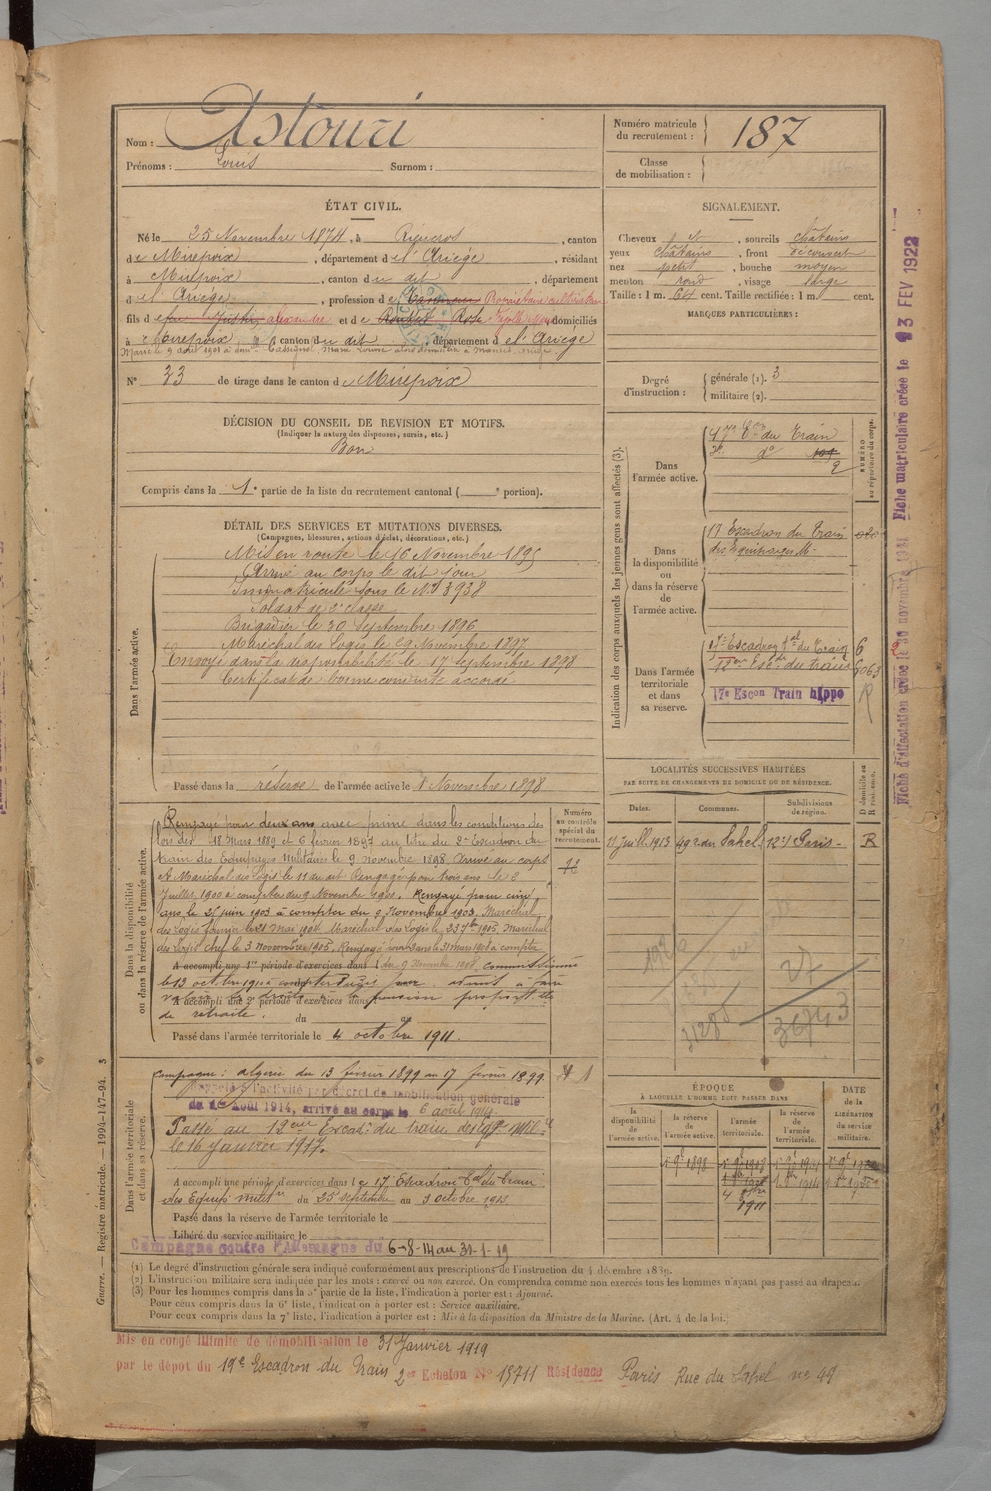 Nom : Astouri
Prénoms : Louis Surnom :
Numéro matricule du recrutement : 187
Classe de mobilisation :
ÉTAT CIVIL.
Né le 25 Novembre 1874, à Rieucros, canton
de Mirepoix, département de l'Ariège, résidant
à Mirepoix, canton du dit, département
de l'Ariège, profession de Propriétaire cultivateur
fils de feu Justin Alexandre et de Rose domiciliés
à Mirepoix, canton du dit, département de l'Ariège
Marié le 9 août 1901 à
N° 33 de tirage dans le canton de Mirepoix
SIGNALEMENT.
Cheveux et , sourcils châtains
yeux châtains , front découvert
nez petit , bouche moyen
menton rond , visage large
Taille : 1 m. 64 cent. Taille rectifiée : 1 m. cent.
MARQUES PARTICULIÈRES :
Degré d'instruction : générale (1). 3
militaire (2).
DÉCISION DU CONSEIL DE REVISION ET MOTIFS.
(Indiquer la nature des dispenses, sursis, etc.)
Bon
Compris dans la 1e partie de la liste du recrutement cantonal ( e portion).
DÉTAIL DES SERVICES ET MUTATIONS DIVERSES.
(Campagnes, blessures, actions d'éclat, décorations, etc.)
Dans l'armée active.
Mis en route le 16 Novembre 1895
Arrivé au corps le dit jour
Immatriculé sous le N° 3938
Soldat de 2e classe
Brigadier le 30 Septembre 1896
Maréchal des Logis le 29 Novembre 1897
Envoyé dans la disponibilité le 17 Septembre 1898
Certificat de bonne conduite accordé
Passé dans la réserve de l'armée active le 1 Novembre 1898
Dans la disponibilité ou dans la réserve de l'armée active.
Numéro au contrôle spécial du recrutement.
Rengagé pour deux ans avec prime dans les conditions des
lois des 18 Mars 1889 et 6 février 1897 au titre du 2e Escadron du
train des Équipages Militaires le 9 novembre 1898. Arrivé au corps
et Maréchal des logis le 11 du dit. Rengagé pour trois ans le 8
Juillet 1900 à compter du 9 Novembre 1900. Rengagé pour cinq
ans le 25 juin 1903 à compter du 9 Novembre 1903. Maréchal
des Logis fourrier le 21 mai 1904. Maréchal des Logis le 23 7bre 1905. Maréchal
des Logis chef le 3 Novembre 1905. Rengagé pour 3 ans le 31 Mars 1908 à compter
A accompli une 1re période d'exercices dans l du 9 Novembre 1908, commissionné
le 13 octobre 1910 à compter admis à faire
A accompli une 2e période d'exercices dans pension proport.lle
de retraite. du au
Passé dans l'armée territoriale le 4 octobre 1911.
Dans l'armée territoriale et dans sa réserve.
Campagne : Algérie du 13 février 1899 au 17 février 1899.
Rappelé à l'activité par décret de mobilisation générale
du 1er Août 1914, arrivé au corps le 6 août 1914.
Passé au 19eme Escad. du train des Eqp. Mil.
le 16 Janvier 1917.
A accompli une période d'exercices dans le 17 Escadron T.al du Train
des Equip. milit.res du 25 septembre au 3 octobre 1913
Passé dans la réserve de l'armée territoriale le
Libéré du service militaire le
Campagne contre l'Allemagne du 6-8-14 au 31-1-19
Indication des corps auxquels les jeunes gens sont affectés (3).
NUMÉRO au répertoire du corps.
Dans l'armée active.
17e Eon du Train
2e do
Dans la disponibilité ou dans la réserve de l'armée active.
17 Escadron du Train
des Equipages M.
Dans l'armée territoriale et dans sa réserve.
17e Escadron T.al du Train 6
19eme Esc. du train 5063
17e Escon Train hippo R
LOCALITÉS SUCCESSIVES HABITÉES
PAR SUITE DE CHANGEMENTS DE DOMICILE OU DE RÉSIDENCE.
Dates. Communes. Subdivisions de région. D domicile ou R résidence.
11 Juill. 1913 49 r. du Sahel 12e Paris R
27
36743
ÉPOQUE
À LAQUELLE L'HOMME DOIT PASSER DANS
la disponibilité de l'armée active. la réserve de l'armée active. l'armée territoriale. la réserve de l'armée territoriale.
DATE de la LIBÉRATION du service militaire.
1er 9bre 1898
1911
(1) Le degré d'instruction générale sera indiqué conformément aux prescriptions de l'instruction du 4 décembre 1889.
(2) L'instruction militaire sera indiquée par les mots : exercé ou non exercé. On comprendra comme non exercés tous les hommes n'ayant pas passé au drapeau.
(3) Pour les hommes compris dans la 5e partie de la liste, l'indication à porter est : Ajourné.
Pour ceux compris dans la 6e liste, l'indication à porter est : Service auxiliaire.
Pour ceux compris dans la 7e liste, l'indication à porter est : Mis à la disposition du Ministre de la Marine. (Art. 4 de la loi.)
Mis en congé illimité de démobilisation le 31 Janvier 1919
par le dépôt du 19e Escadron du Train 2er Echelon N° 15711 Résidence Paris Rue du Sahel no 49
Guerre. — Registre matricule. — 1994-147-94. 3
Fiche matriculaire créée le 13 FEV 1922
Fiche d'affectation créée le 30 novembre 1921